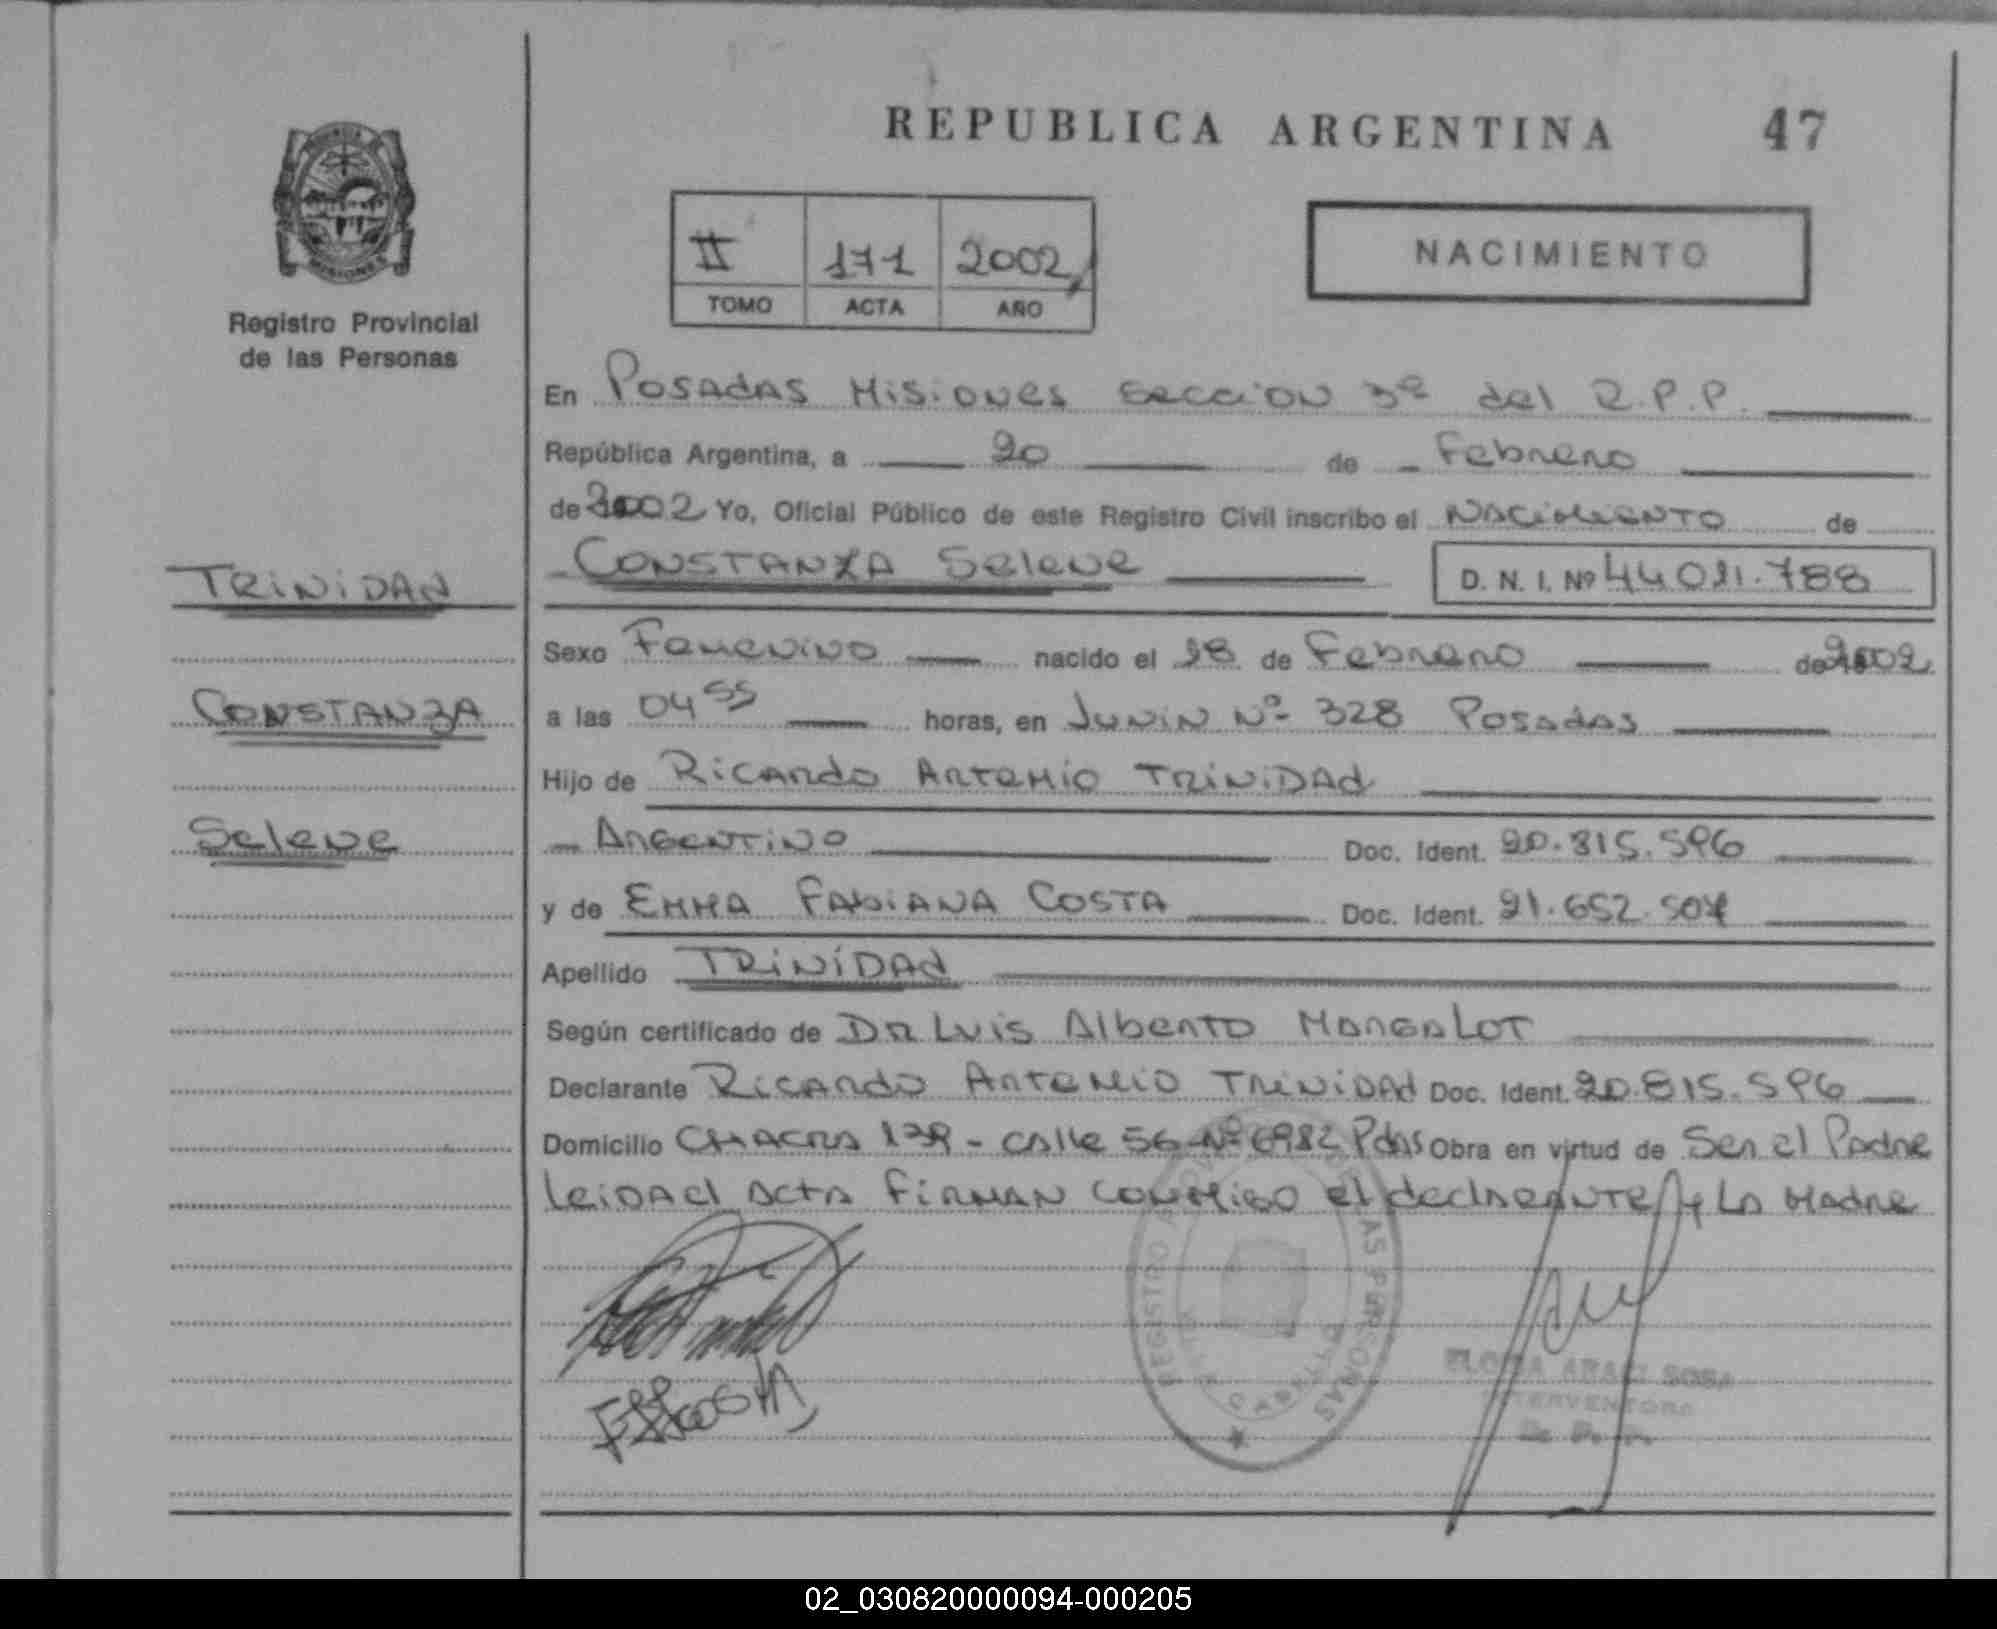 REPUBLICA ARGENTINA 47
II 171 2002
TOMO ACTA AÑO
NACIMIENTO
Registro Provincial
de las Personas
En Posadas Misiones Seccion 3ª del R.P.P.
República Argentina, a 20 de Febrero
de 2002 Yo, Oficial Público de este Registro Civil inscribo el Nacimiento de
TRINIDAD
CONSTANZA Selene D. N. I. Nº
Sexo Femenino nacido el 18 de Febrero de 2002
CONSTANZA
a las 04 55 horas, en Junin Nº 328 Posadas
Hijo de Ricardo Artemio TRINIDAD
Selene
Argentino Doc. Ident. 20.815.596
y de EMMA FABIANA COSTA Doc. Ident. 21.652.504
Apellido TRINIDAD
Según certificado de DR Luis Alberto
Declarante Ricardo Artemio TRINIDAD Doc. Ident. 20.815.596
Domicilio CHACRA - Calle 56 Nº 6982 Pdas Obra en virtud de Ser el Padre
Leida el acta firman conmigo el declarante y la madre
REGISTRO DE LAS PERSONAS
SOSA
INTERVENTORA
02_030820000094-000205